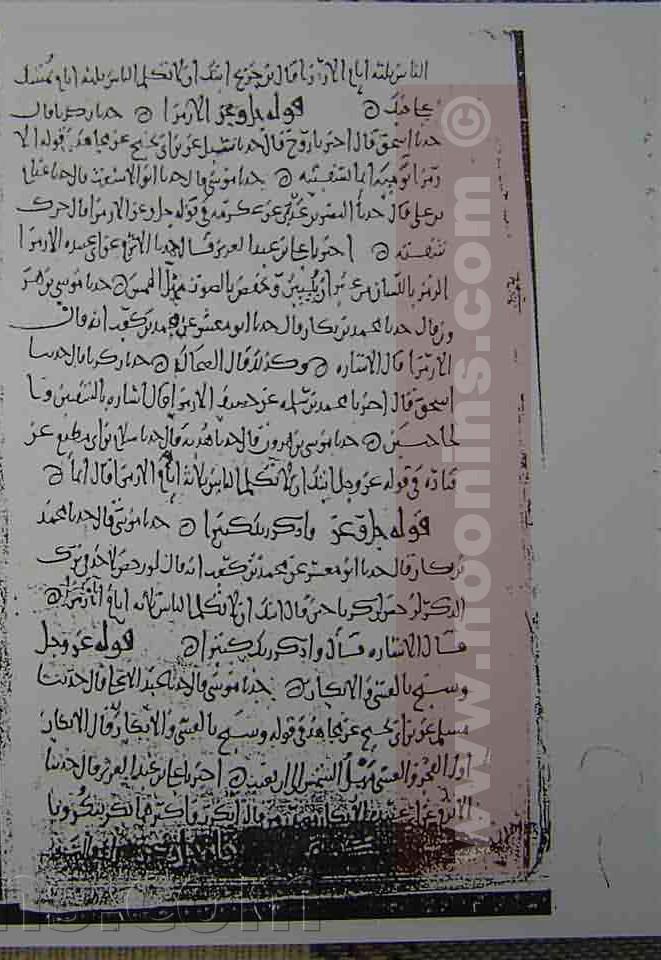 الناس ثلثه ايام الا رمزا قال بن جريج ايتك ان لا تكلم الناس ثلثه ايام
قوله جل وعز الا رمزا حدثنا زكريا قال
حدثنا اسحق قال اخبرنا روح قال حدثنا شبل عن بن ابي نجيح عن مجاهد قوله الا
رمزا شفتيه حدثنا موسى قال حدثنا ابو الاشعث قال حدثنا
بن علي قال حدثنا النضر بن عربي عن عكرمه في قوله جل وعز الا رمزا قال تحرك
شفتيه اخبرنا علي بن عبد العزيز قال حدثنا الاثرم عن ابي عبيده الا رمزا
الرمز باللسان من غير ان يبين ويخفض بالصوت مثل الهمس حدثنا موسى بن هر
ون قال حدثنا محمد بن بكار قال حدثنا ابو معشر عن محمد بن كعب انه قال
الا رمزا قال الاشاره وكذلك قال حدثنا زكريا قال حدثنا
اسحق قال اخبرنا محمد بن سلمه عن خصيف الا رمزا قال اشاره بالشفتين وبا
لحاجبين حدثنا موسى بن هرون قال حدثنا هدبه قال حدثنا سلام بن ابي مطيع عن
قتاده في قوله عز وجل ايتك ان لا تكلم الناس ثلاثه ايام الا رمزا قال ايما
قوله جل وعز واذكر ربك كثيرا حدثنا موسى قال حدثنا محمد
بن بكار قال حدثنا ابو معشر عن محمد بن كعب انه قال لو رخص لاحد في ترك
الذكر لرخص لزكريا حين قال ايتك ان لا تكلم الناس ثلاثه ايام الا رمزا
قال الاشاره قال واذكر ربك كثيرا قوله عز وجل
وسبح بالعشي والابكار حدثنا موسى قال حدثنا عبد الاعلى قال حدثنا
مسلم عن بن ابي نجيح عن مجاهد في قوله وسبح بالعشي والابكار قال الابكار
اول الفجر والعشي ميل الشمس الى ان تغيب اخبرنا علي بن عبد العزيز قال حدثنا
الاثرم عن ابي عبيده الابكار
© www.noonins.com
ns.com